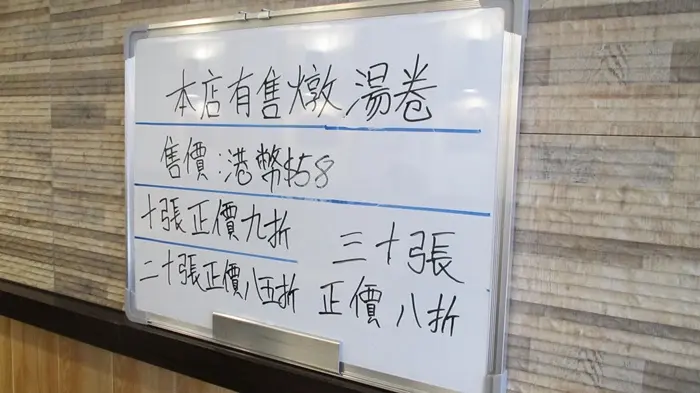 本店有售燉湯卷
售價:港幣$58
十張正價九折
二十張正價八五折
三十張
正價八折